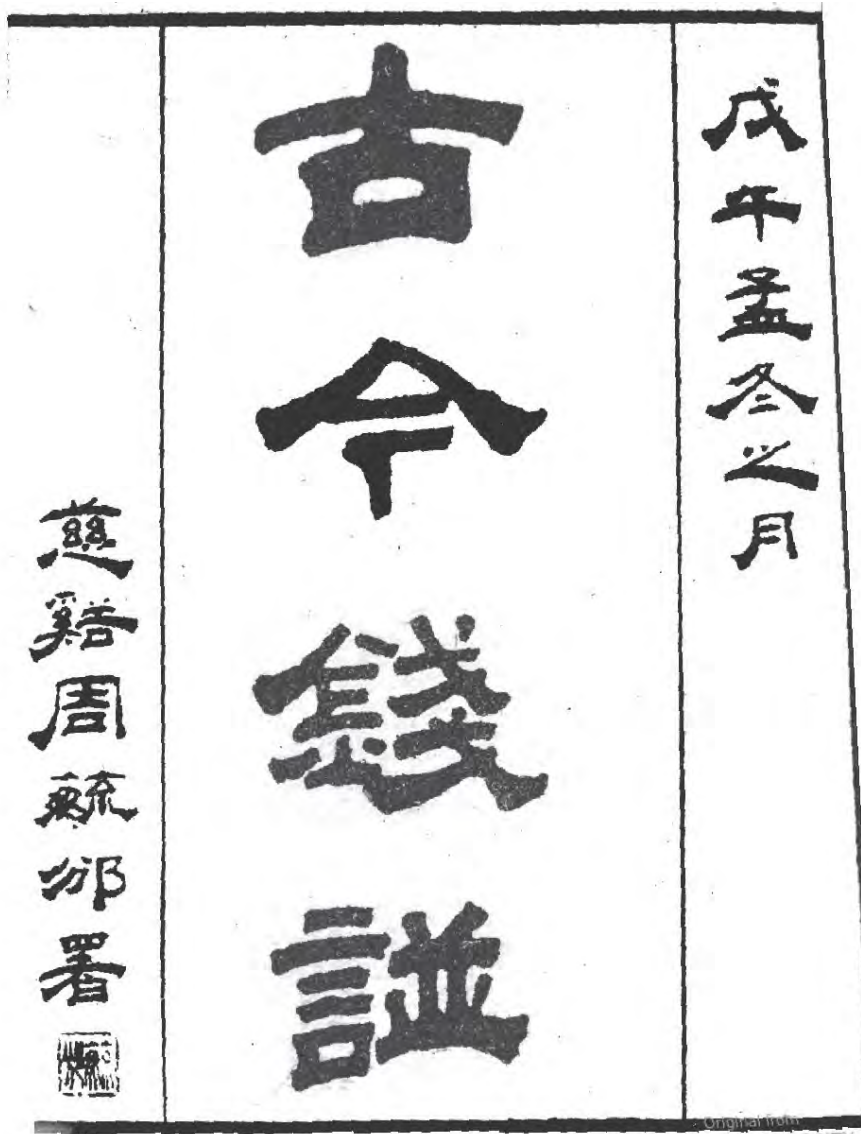 戊午孟冬之月
古今錢譜
慈谿周毓邠署
Original from